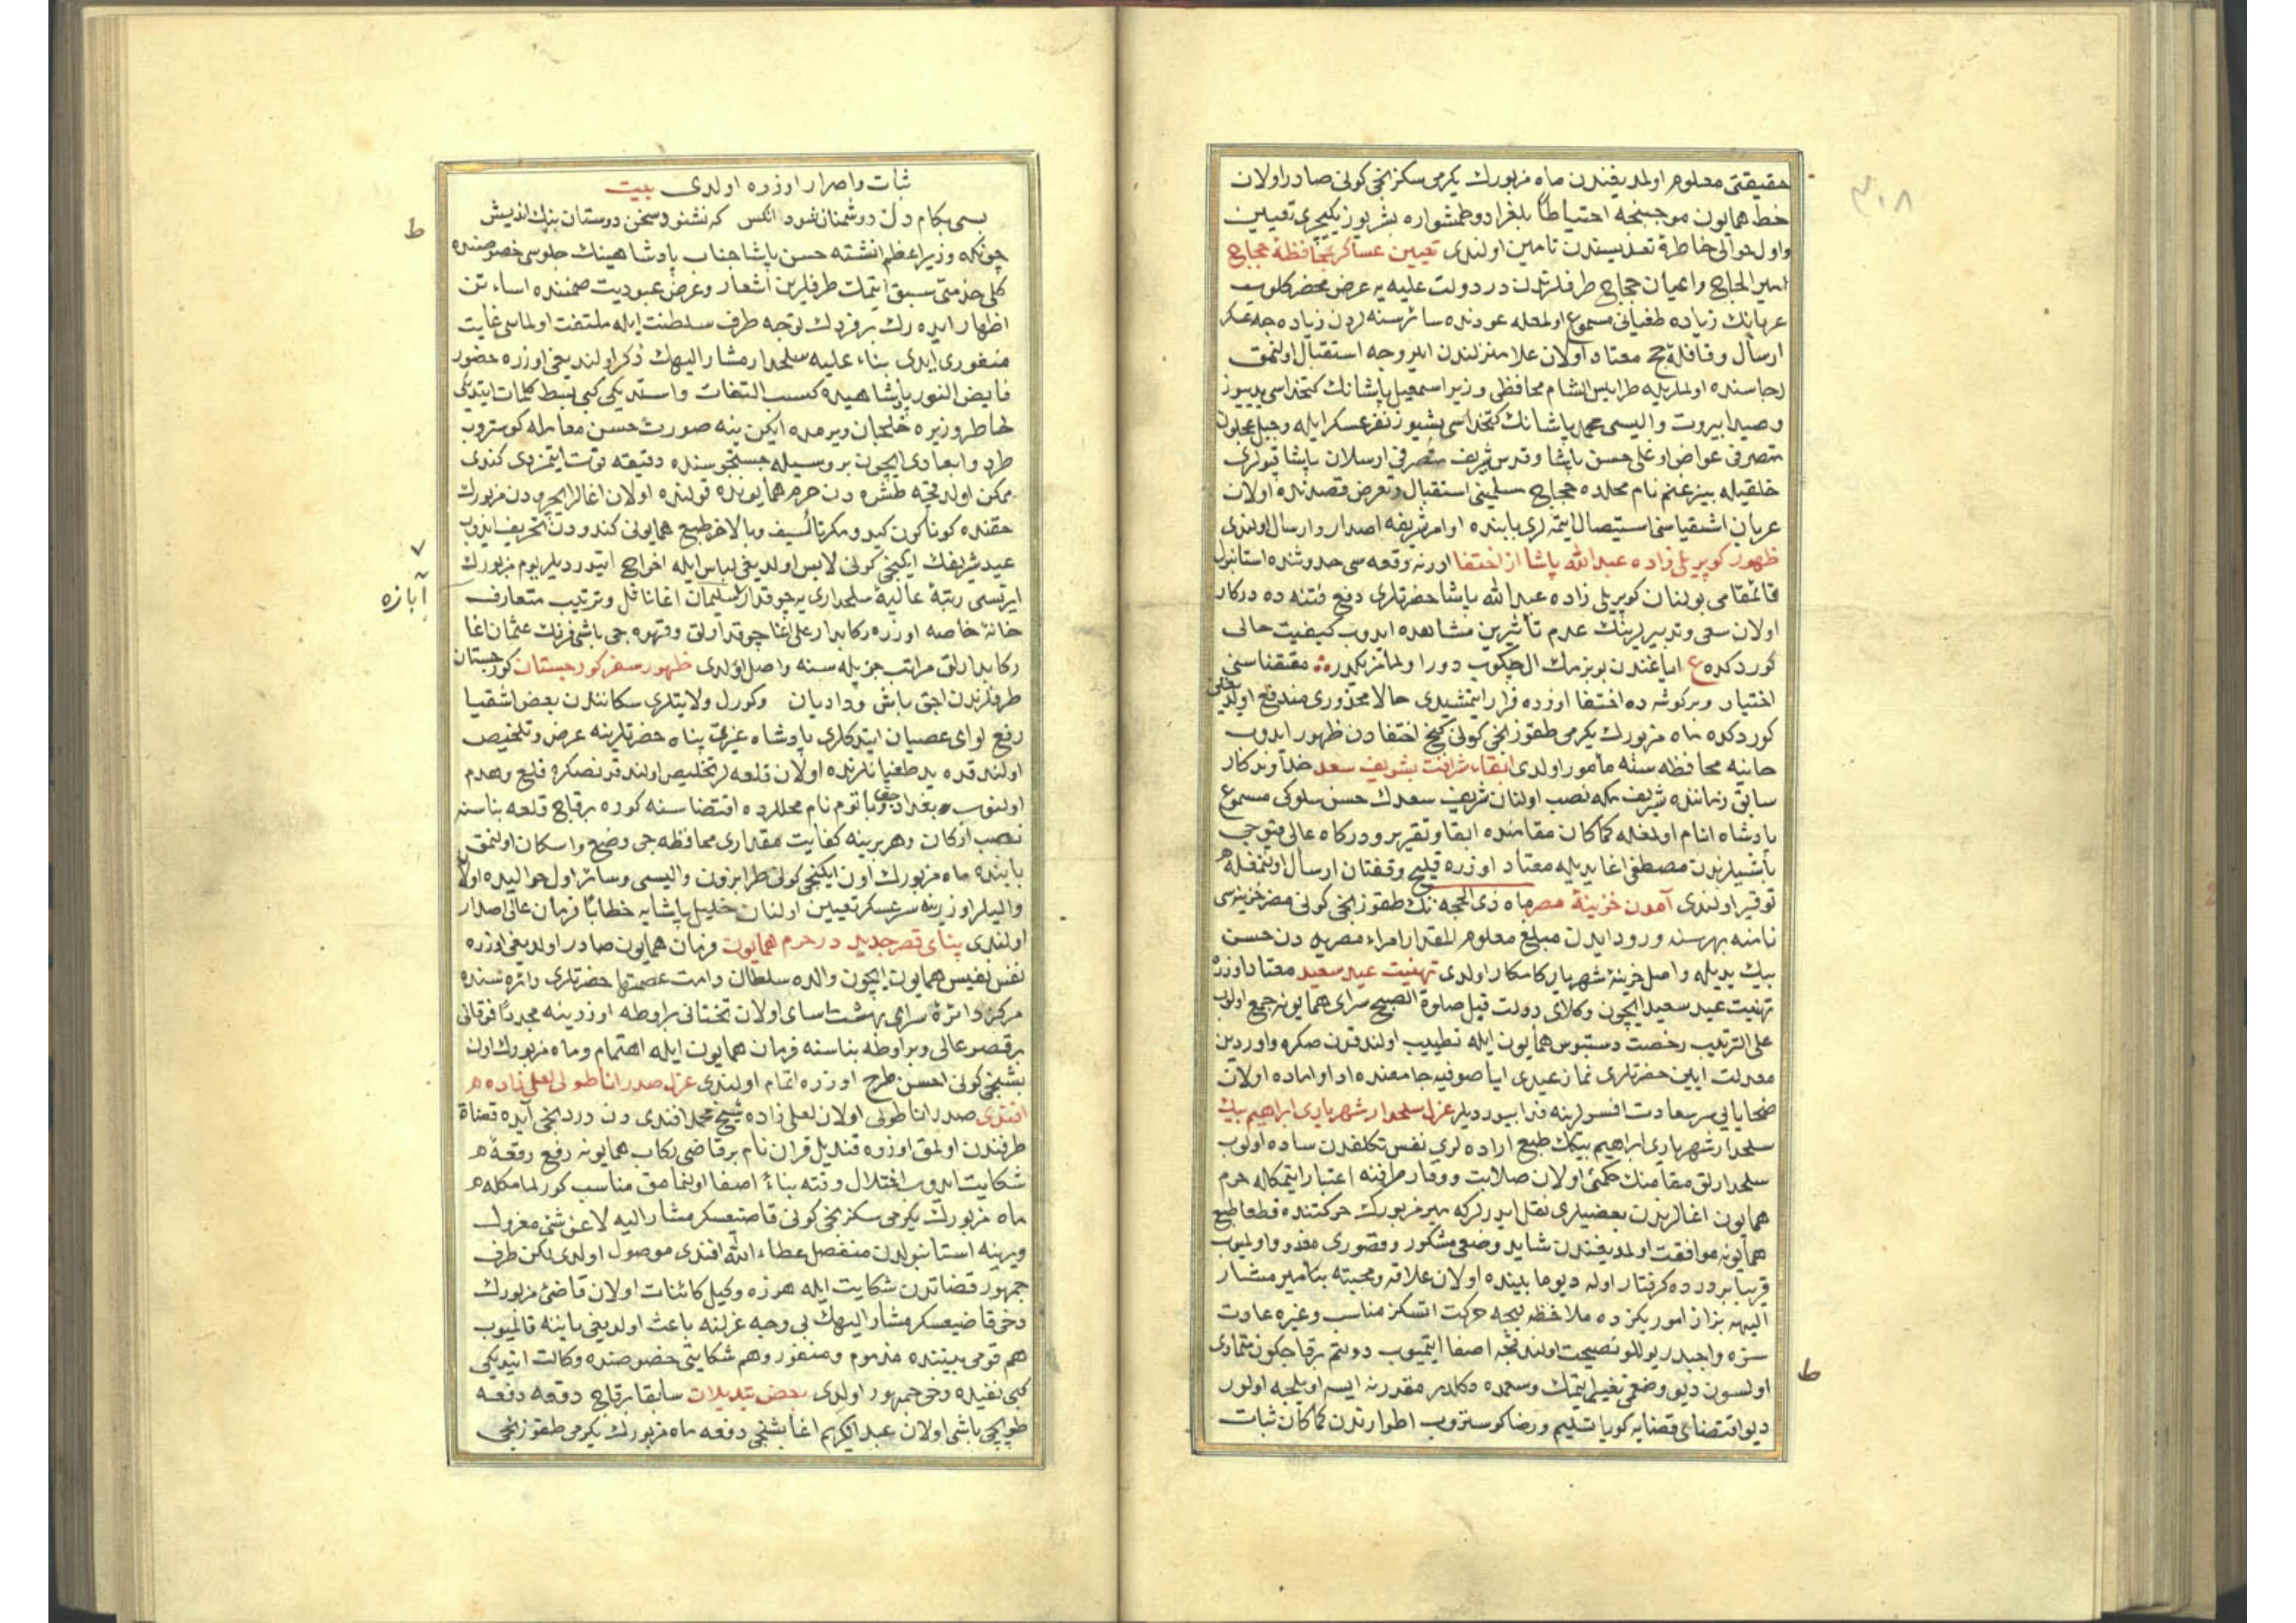 حقیقتی معلوم اولمدیغندن ماه مزبورك یكرمی سكزنجی كونی صادر اولان
خط همایون موجبنجه احتیاطاً بلغراد و طمشواره بشر یوز یكیچری تعیین
و اول حوالی خاطرۀ تعدیسندن تامین اولندی تعیین عساكر بمحافظۀ حجاج
امیر الحاج و اعیان حجاج طرفلرندن در دولت علیه یه عرض محضر كلوب
عربانك زیاده طغیانی مسموع اولمغله عودتده سائر سنه لردن زیاده جه عسكر
ارسال و قافلۀ حج معتاد اولان علا منزلندن ایلرو جه استقبال اولنمق
رجاسنده اولملریله طرابلس الشام محافظی وزیر اسمعیل پاشانك كتخداسی یدیوز
و صیدا بیروت والیسی محمد پاشانك كتخداسی بشیوز نفر عسكر ایله و جبل عجلون
متصرفی عواض اوغلی حسن پاشا و قدس شریف متصرفی ارسلان پاشا قپولری
خلقیله بیر غنم نام محلده حجاج مسلمینی استقبال و تعرض قصدنده اولان
عربان اشقیاسنی استیصال ایتمه لری بابنده اوامر شریفه اصدار و ارسال اولندی
ظهور كوپریلی زاده عبد الله پاشا از اختفا ادرنه وقعه سی حدوثنده استانبول
قائمقامی بولنان كوپریلی زاده عبد الله پاشا حضرتلری دفع فتنه ده دركار
اولان سعی و تدبیرلرینك عدم تأثیرین مشاهده ایدوب كیفیت حالی
كوردكده ع ایاغندن بو بزمك ال چكوب دور اولمانز یكدر مقتضاسنی
اختیار و بر كوشه ده اختفا اوزره قرار ایتمشیدی حالا محذوری مندفع اولدیغن
كوردكده ماه مزبورك یكرمی طقوزنجی كونی كنج اختفادن ظهور ایدوب
حانیه محافظه سنه مأمور اولدی ابقاء شرافت بشریف سعد خداوندكار
سابق زماننده شریف مكه نصب اولنان شریف سعدك حسن سلوكی مسموع
پادشاه انام اولمغله كماكان مقامنده ابقا و تقریر و درگاه عالی قپوجی
باشیلرندن مصطفی اغا یدیله معتاد اوزره قلیج و قفتان ارسال اولنمغله
توقیر اولندی آمدن خزینۀ مصر ماه ذی الحجه نك طقوزنجی كونی مصر خزینه سی
نامنه بهر سنه ورود ایدن مبلغ معلوم المقدار امراء مصریه دن حسن
بیك یدیله واصل خزینۀ شهریار كامكار اولدی تهنیت عید سعید معتاد اوزره
تهنیت عید سعید ایچون وكلای دولت قبل صلوة الصبح سرای همایونه جمع اولوب
علی الترتیب رخصت دستبوس همایون ایله تطییب اولندقدن صكره داوردین
معدلت ایین حضرتلری نماز عیدی ایاصوفیه جامعنده ادا و اماده اولان
ضحایایی سر سعادت افسرلرینه فدا بیوردیلر عزل سلحدار شهریاری ابراهیم بیك
سلحدار شهریاری ابراهیم بیكك طبع اراده لری نفس تكلفدن ساده اولوب
سلحدارلق مقامنك حكمی اولان صلابت و وقار طرفنه اعتبار ایتمكله حرم
همایون اغالرندن بعضیلری نقل ایدرلر كه میر مزبورك حركتنده قطعا طبع
همایونه موافقت اولمدیغندن شاید وضعی مشكور و قصوری معذور اولمیوب
قریبا بر درده كرفتار اوله دیو مابینده اولان علاقه و محبته بناء میر مشار
الیهه بزاز امور یكزده ملاحظه لیجه حركت اتسكز مناسب و غیره عادت
سزه واجبدر یوللو نصیحت اولندقجه اصغا ایتمیوب دولتم برقاج كون متمادی
اولسون دیو وضعمی تغییر ایتمك وسعمده دكلدر مقدر نه ایسه اویلجه اولور
دیو اقتضای قضایه كویا تسلیم و رضا كوستروب اطوارندن كماكان ثبات
ط
ثبات و اصرار اوزره اولدی بیت
بسی بكام دل دوشمنان شود انكس كه نشنود سخن دوستان نیك اندیش
ط
چونكه وزیر اعظم انشته حسن پاشا جناب پادشاهینك جلوسی خصوصنده
كلی خدمتی سبق ایتمك طرفلرین اشعار و عرض عبودیت ضمننده اساءتن
اظهار ایده رك بر فردك توجه طرف سلطنت ایله ملتفت اولماسی غایت
منفوری ایدی بناء علیه سلحدار مشار الیهك ذكر اولندیغی اوزره حضور
فایض النور پادشاهیده كسب التفات و استدیكی كبی بسط كلمات ایتدیكی
خاطر وزیره خلجان ویرمده ایكن ینه صورت حسن معامله كوستروب
طرد و ابعادی ایچون بر وسیله جستجوسنده دقیقه فوت ایتمزدی كندی
ممكن اولدقجه طشره دن حرم همایونده قولنده اولان اغالر ایچرودن مزبورك
حقنده كوناكون كید و مكر تألیف و بالاخر طبع همایونی كندودن تحریف ایدوب
عید شریفك ایكنجی كونی لابس اولدیغی لباس ایله اخراج ایتدردیلر یوم مزبورك
ایرتسی رتبۀ عالیۀ سلحداری یه چوقدار سلیمان اغا نائل و ترتیب متعارف
آبازه
خانۀ خاصه اوزره ركابدار علی اغا چوقدارلق و قهوه جی باشی فرنك عثمان اغا
ركابدارلق مراتب جزیله سنه واصل اولدی ظهور سفر كورجستان كورجستان
طرفلرندن اجق باش و دادیان و كورل ولایتلری سكانندن بعض اشقیا
رفع لوای عصیان ایتدكلری پادشاه عزت پناه حضرتلرینه عرض و تلخیص
اولندقده ید طغیانلرنده اولان قلعه لر تخلیص اولندقدنصكره قلع و هدم
اولنوب بغدادجق و باتوم نام محللرده اقتضاسنه كوره برقاج قلعه بناسنه
نصب اركان و هر برینه كفایت مقداری محافظه جی وضع و اسكان اولنمق
بابنده ماه مزبورك اون ایكنجی كونی طرابزون والیسی و سائر اول حوالیده اولان
والیلر اوزرینه سرعسكر تعیین اولنان خلیل پاشایه خطابًا فرمان عالی اصدار
اولندی بنای قصر جدید در حرم همایون فرمان همایون صادر اولدیغی اوزره
نفس نفیس همایون ایچون والده سلطان دامت عصمتها حضرتلری دائره سنده
مركز دائرۀ سرای بهشت اسای اولان تختانی براوطه اوزرینه مجددًا فوقانی
بر قصر عالی و بر اوطه بناسنه فرمان همایون ایله اهتمام و ماه مزبورك اون
بشنجی كونی احسن طرح اوزره اتمام اولندی عزل صدر اناطولی لعلی زاده
افندی صدر اناطولی اولان لعلی زاده شیخ محمد افندی دن دردنجی آیده قضاة
طرفندن اولمق اوزره قندیل قران نام بر قاضی ركاب همایونه رفع رقعۀ
شكایت ایدوب اختلال وقته بناءً اصغا اولنمامق مناسب كورلمامكله
ماه مزبورك یكرمی سكزنجی كونی قاضیعسكر مشار الیه لا عن شئ معزول
و یرینه استانبولدن منفصل عطاء الله افندی موصول اولدی لكن طرف
جمهور قضاتدن شكایت ایله هرزه وكیل كائنات اولان قاضئ مزبورك
دخی قاضیعسكر مشار الیهك بی وجه عزلنه باعث اولدیغی یاننه قالمیوب
هم قومی بیننده مذموم و منفور و هم شكایتی خصوصنده وكالت ایتدیكی
كبی نفیده دخی جمهور اولدی بعض تبدیلات سابقا برقاج دفعه دفعه
طوپچی باشی اولان عبد الكریم اغا بشنجی دفعه ماه مزبورك یكرمی طقوزنجی